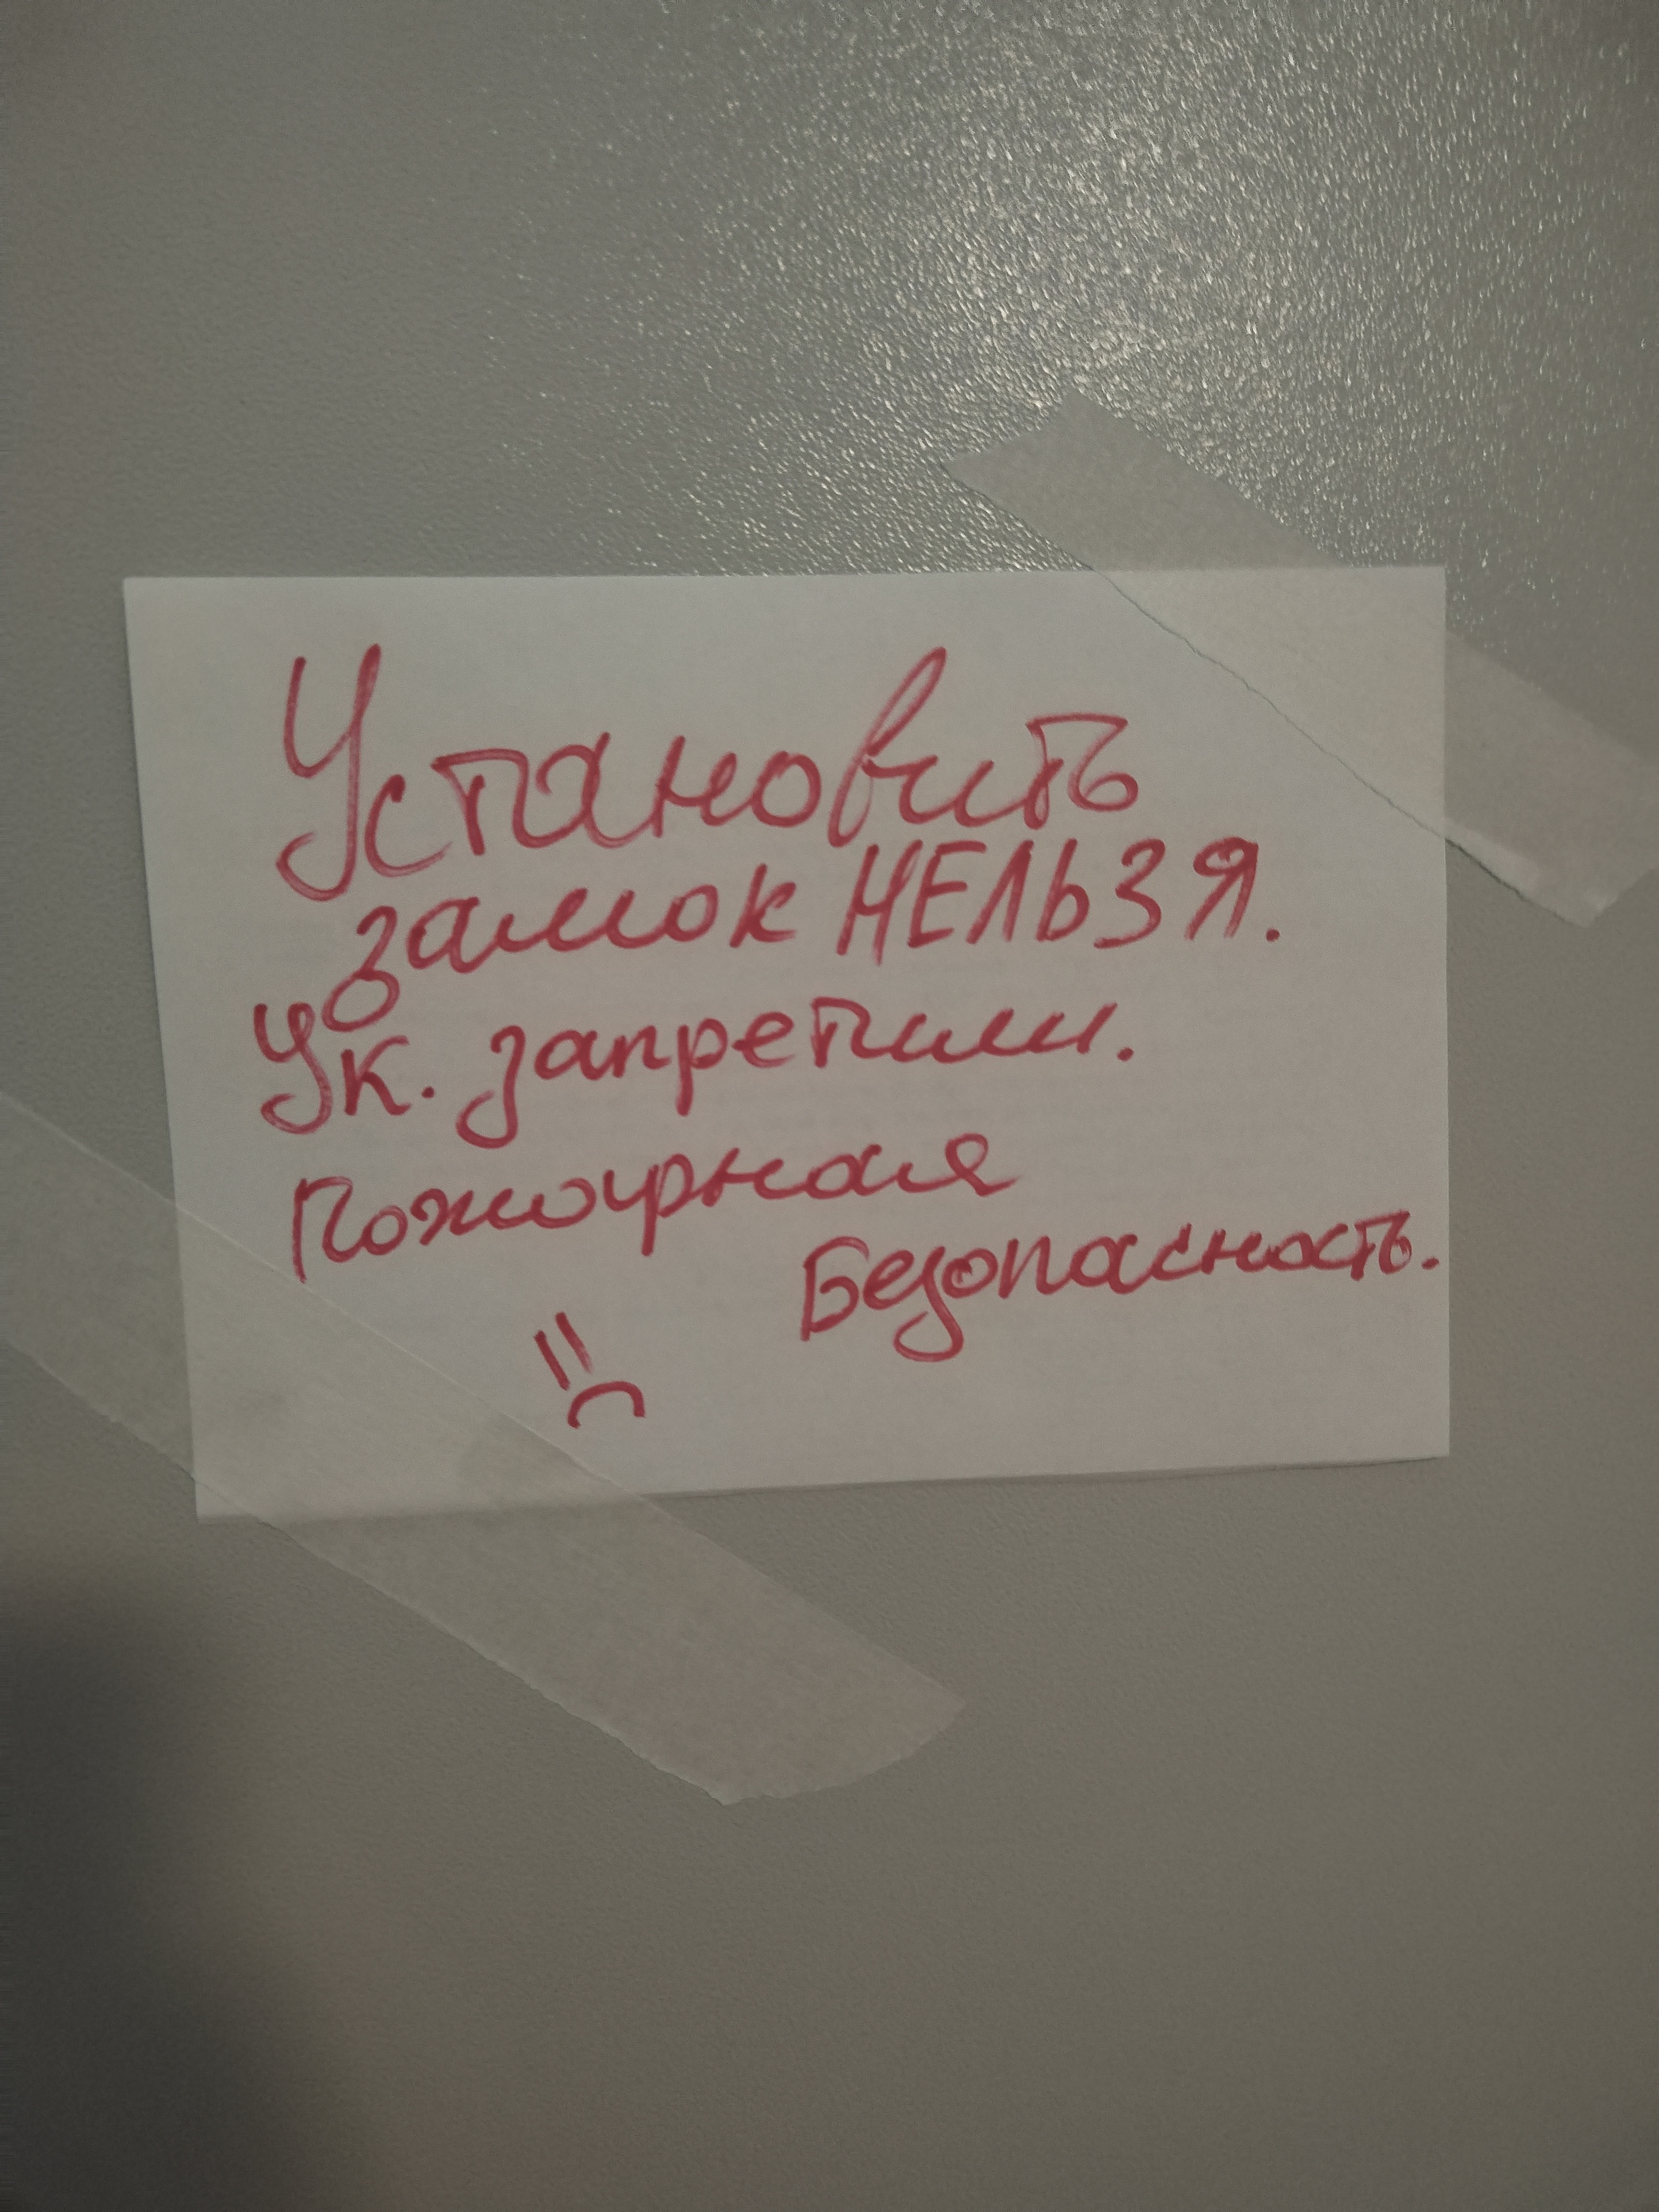 Установить
замок НЕЛЬЗЯ.
Ук. запретили.
Пожарная
Безопасность.